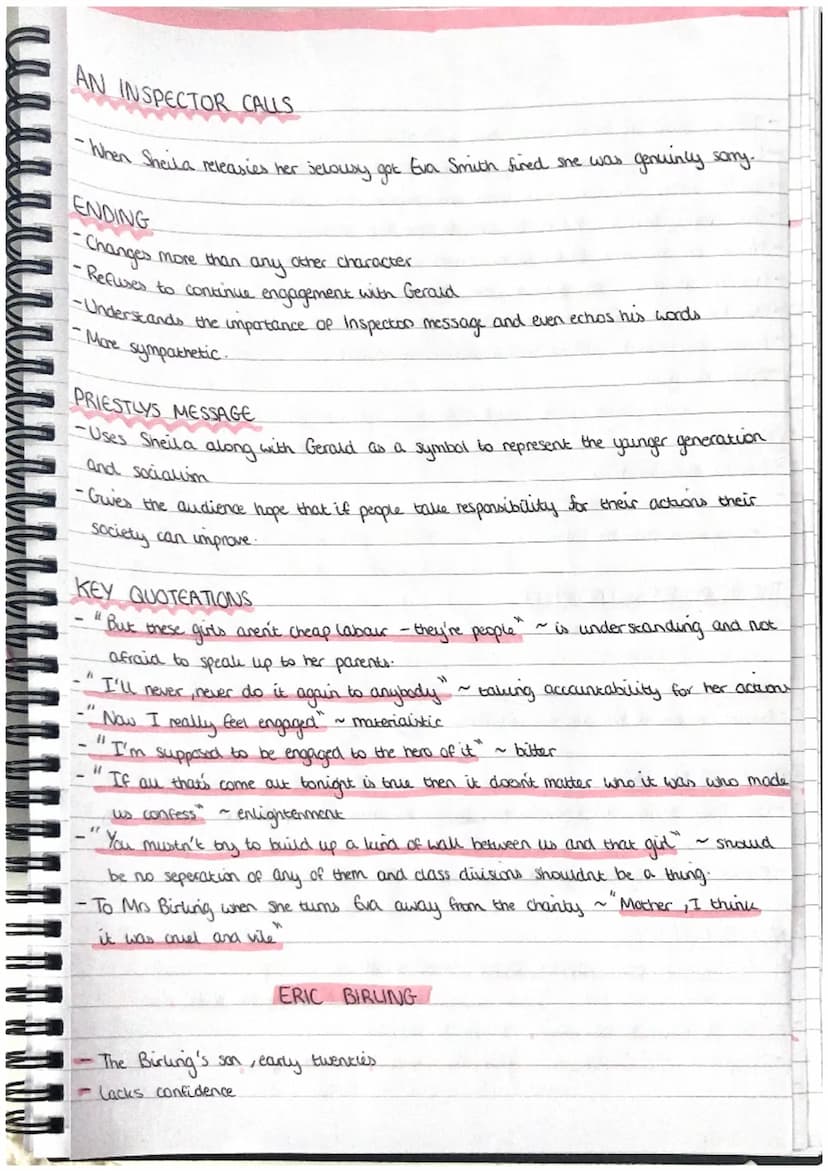 AN INSPECTOR CALLS
- When Sheila releasies her jelousy got Eva Smith fired she was genuinly sorry.
ENDING
- Changes more than any other character
- Refuses to continue engagement with Gerald
- Understands the importance of Inspectors message and even echos his words
- More sympathetic.
PRIESTLYS MESSAGE
- Uses Sheila along with Gerald as a symbol to represent the younger generation
and socialism
- Gives the audience hope that if people take responsibility for their actions their
society can improve.
KEY QUOTEATIONS
- "But these girls aren't cheap labour - they're people" ~ is understanding and not
afraid to speak up to her parents.
- "I'll never, never do it again to anybody" ~ taking accountability for her actions
- "Now I really feel engaged" ~ materialistic
- "I'm supposed to be engaged to the hero of it" ~ bitter
- "If all that's come out tonight is true then it doesn't matter who it was who made
us confess" ~ enlightenment
- "You mustn't try to build up a kind of wall between us and that girl" ~ should
be no seperation of any of them and class divisions shouldnt be a thing.
- To Mrs Birling when she turns Eva away from the charity ~ "Mother, I think
it was cruel and vile"
ERIC BIRLING
- The Birling's son, early twenties
- Lacks confidence